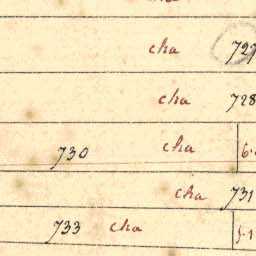 cha 727
cha 728
730 cha 6
cha 731
733 cha 5-1